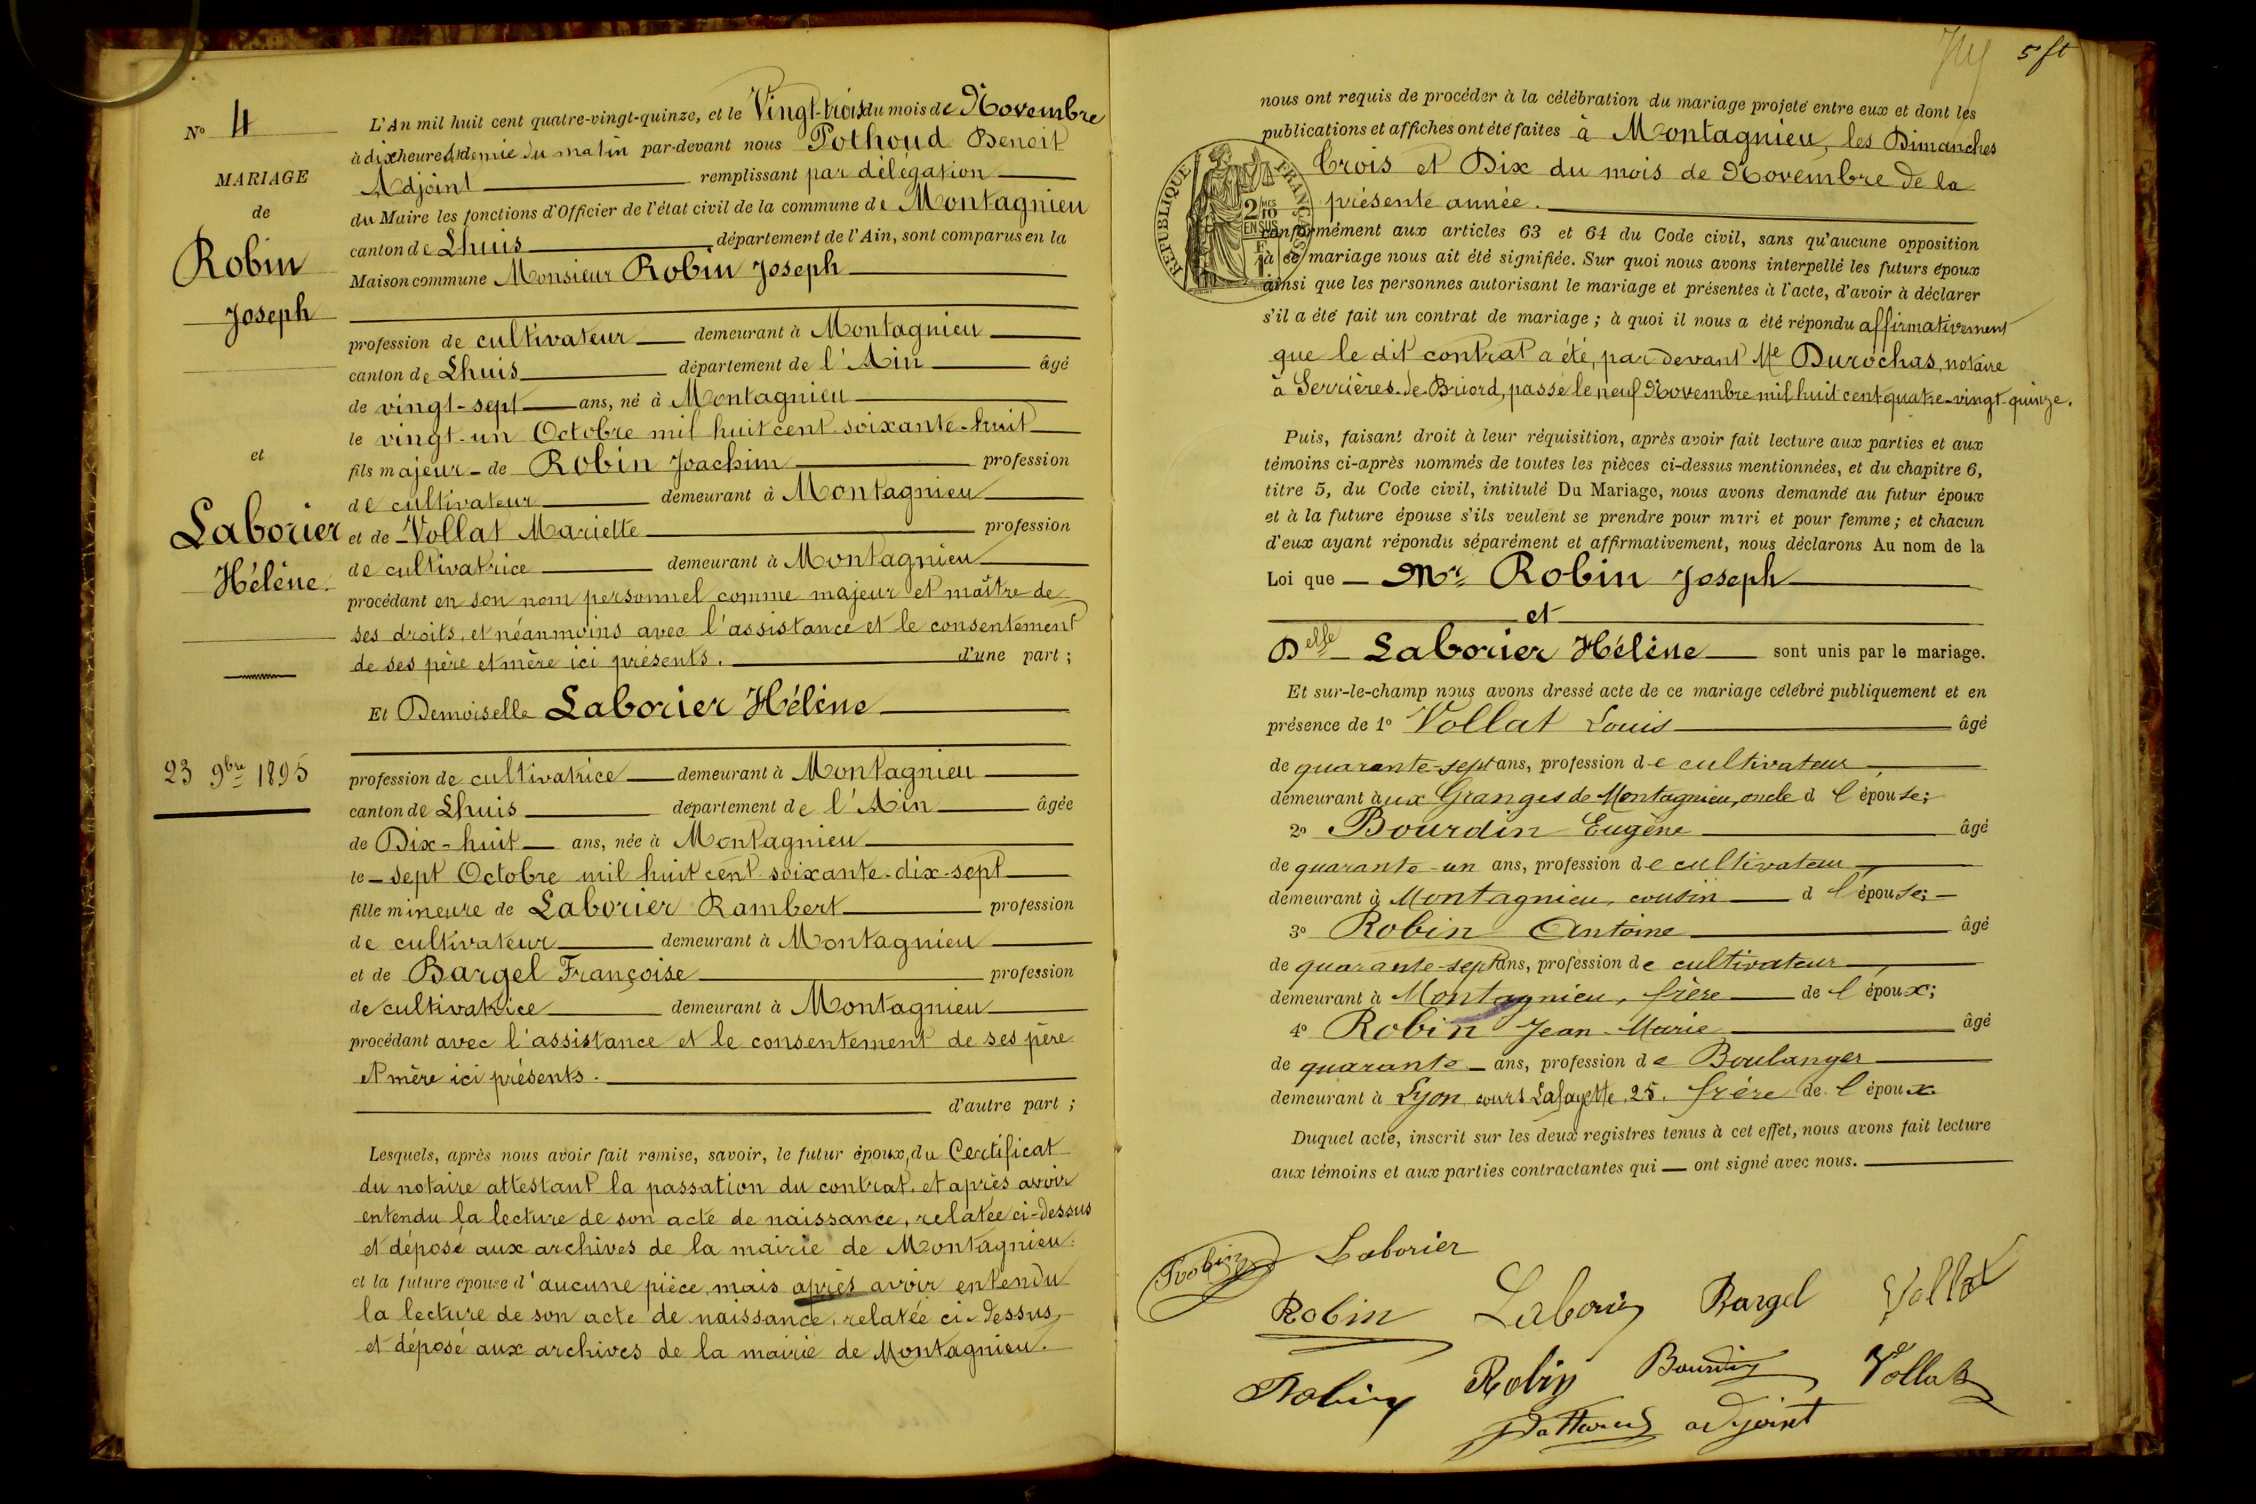 N° 4
MARIAGE
de
Robin
Joseph
et
Laborier
Hélène.
23 9bre 1895
L'An mil huit cent quatre-vingt-quinze, et le Vingt-trois du mois de Novembre
à dix heures & demie du matin par-devant nous Pothoud Benoit
Adjoint remplissant par délégation
du Maire les fonctions d'Officier de l'état civil de la commune de Montagnieu
canton de Lhuis département de l'Ain, sont comparus en la
Maison commune Monsieur Robin Joseph
profession de cultivateur demeurant à Montagnieu
canton de Lhuis département de l'Ain âgé
de vingt-sept ans, né à Montagnieu
le vingt-un Octobre mil huit cent soixante-huit
fils majeur de Robin Joachim profession
de cultivateur demeurant à Montagnieu
et de Vollat Mariette profession
de cultivatrice demeurant à Montagnieu
procédant en son nom personnel comme majeur et maître de
ses droits, et néanmoins avec l'assistance et le consentement
de ses père et mère ici présents. d'une part ;
Et Demoiselle Laborier Hélène
profession de cultivatrice demeurant à Montagnieu
canton de Lhuis département de l'Ain âgée
de Dix-huit ans, née à Montagnieu
le sept Octobre mil huit cent soixante-dix-sept
fille mineure de Laborier Rambert profession
de cultivateur demeurant à Montagnieu
et de Bargel Françoise profession
de cultivatrice demeurant à Montagnieu
procédant avec l'assistance et le consentement de ses père
et mère ici présents.
d'autre part ;
Lesquels, après nous avoir fait remise, savoir, le futur époux, du Certificat
du notaire attestant la passation du contrat, et après avoir
entendu la lecture de son acte de naissance, relatée ci-dessus
et déposé aux archives de la mairie de Montagnieu.
et la future épouse d'aucune pièce, mais après avoir entendu
la lecture de son acte de naissance, relatée ci-dessus,
et déposé aux archives de la mairie de Montagnieu.
5 ft
nous ont requis de procéder à la célébration du mariage projeté entre eux et dont les
publications et affiches ont été faites à Montagnieu, les Dimanches
Trois et Dix du mois de Novembre de la
présente année.
RÉPUBLIQUE FRANÇAISE
2 10 EN SUS
conformément aux articles 63 et 64 du Code civil, sans qu'aucune opposition
à ce mariage nous ait été signifiée. Sur quoi nous avons interpellé les futurs époux
ainsi que les personnes autorisant le mariage et présentes à l'acte, d'avoir à déclarer
s'il a été fait un contrat de mariage ; à quoi il nous a été répondu affirmativement
que le dit contrat a été, par devant Me Durochas, notaire
à Serrières-de-Briord, passé le neuf Novembre mil huit cent quatre-vingt-quinze.
Puis, faisant droit à leur réquisition, après avoir fait lecture aux parties et aux
témoins ci-après nommés de toutes les pièces ci-dessus mentionnées, et du chapitre 6,
titre 5, du Code civil, intitulé Du Mariage, nous avons demandé au futur époux
et à la future épouse s'ils veulent se prendre pour mari et pour femme ; et chacun
d'eux ayant répondu séparément et affirmativement, nous déclarons Au nom de la
Loi que Mr Robin Joseph
et
Delle Laborier Hélène sont unis par le mariage.
Et sur-le-champ nous avons dressé acte de ce mariage célébré publiquement et en
présence de 1° Vollat Louis âgé
de quarante-sept ans, profession de cultivateur,
demeurant aux Granges de Montagnieu, oncle d l'épouse;
2° Bourdin Eugène âgé
de quarante-un ans, profession de cultivateur,
demeurant à Montagnieu, cousin d l'épouse;
3° Robin Antoine âgé
de quarante-sept ans, profession de cultivateur,
demeurant à Montagnieu, frère de l'époux;
4° Robin Jean-Marie âgé
de quarante ans, profession de Boulanger
demeurant à Lyon, cours Lafayette, 25, frère de l'époux
Duquel acte, inscrit sur les deux registres tenus à cet effet, nous avons fait lecture
aux témoins et aux parties contractantes qui ont signé avec nous.
Robin Laborier
Robin Laborier Bargel Vollat
Robin Robin Bourdin Vollat
adjoint